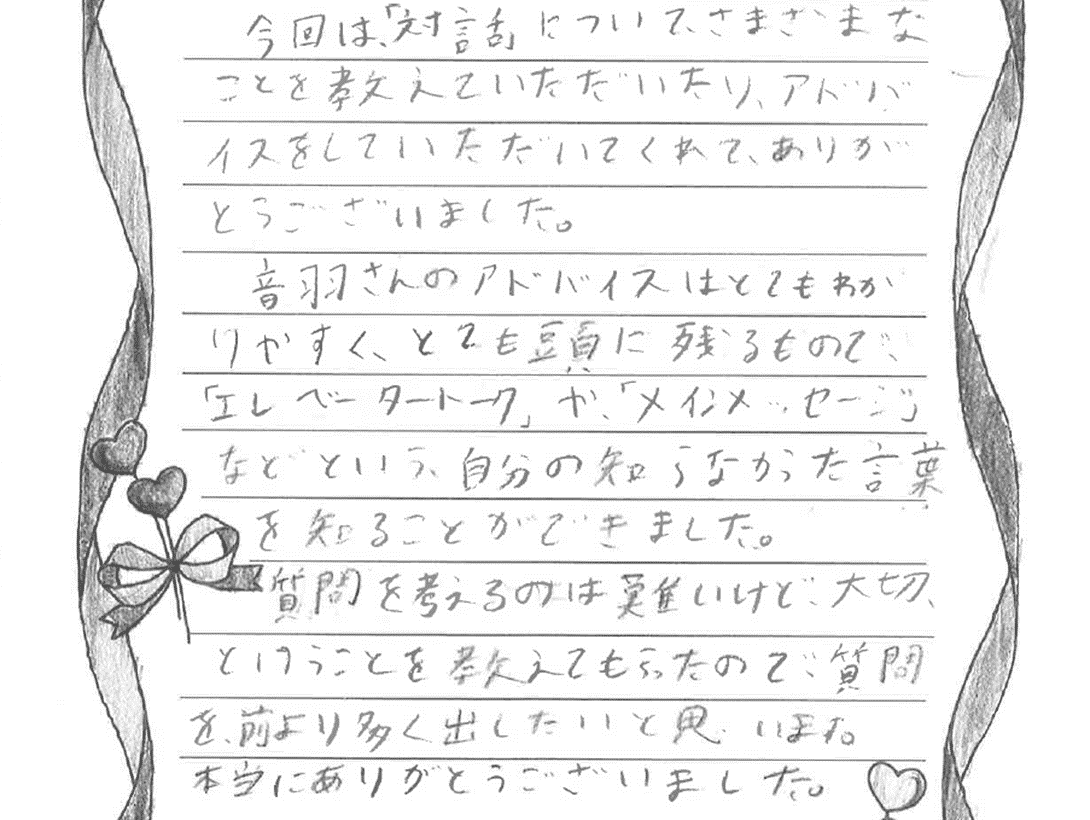 今回は、「対話」について、さまざまな
ことを教えていただいたり、アドバ
イスをしていただいてくれて、ありが
とうございました。
音羽さんのアドバイスはとてもわか
りやすく、とても頭に残るもので、
「エレベータートーク」や、「メインメッセージ」
などという、自分の知らなかった言葉
を知ることができました。
質問を考えるのは難いけど、大切、
ということを教えてもらったので、質問
を、前より多く出したいと思います。
本当にありがとうございました。